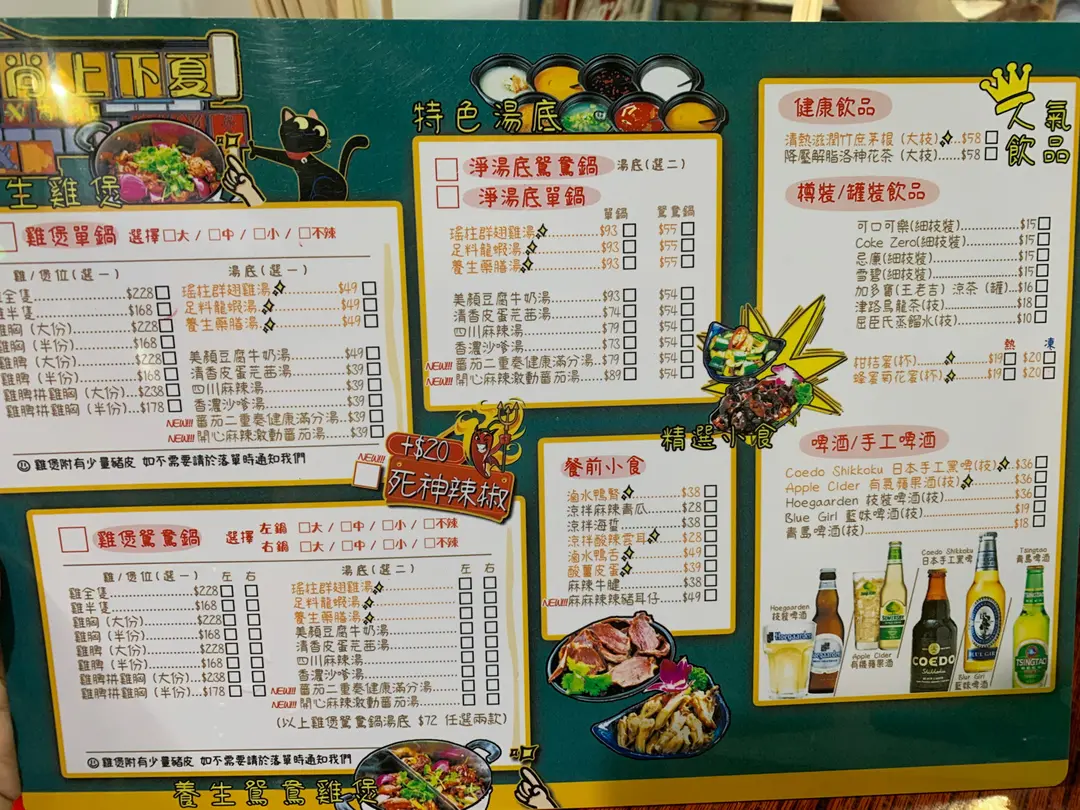 尚上下夏
生雞煲
雞煲單鍋 選擇 大 / 中 / 小 / 不辣
雞/煲位(選一) 湯底(選一)
全隻 $228
半隻 $168
雞胸 (大份) $228
雞胸 (半份) $168
雞脾 (大份) $228
雞脾 (半份) $168
雞脾拼雞胸 (大份) $238
雞脾拼雞胸 (半份) $178
瑤柱群翅雞湯 $49
足料龍蝦湯 $49
養生藥膳湯 $49
美顏豆腐牛奶湯 $49
清香皮蛋芫茜湯 $39
四川麻辣湯 $39
香濃沙嗲湯 $39
NEW!!! 蕃茄二重奏健康滿分湯 $39
NEW!!! 開心麻辣激動蕃茄湯 $39
雞煲附有少量豬皮 如不需要請於落單時通知我們
NEW!!! +$20
死神辣椒
雞煲鴛鴦鍋 選擇
左鍋 大 / 中 / 小 / 不辣
右鍋 大 / 中 / 小 / 不辣
雞/煲位(選一) 左 右
雞全隻 $228
雞半隻 $168
雞胸 (大份) $228
雞胸 (半份) $168
雞脾 (大份) $228
雞脾 (半份) $168
雞脾拼雞胸 (大份) $238
雞脾拼雞胸 (半份) $178
湯底(選二) 左 右
瑤柱群翅雞湯
足料龍蝦湯
養生藥膳湯
美顏豆腐牛奶湯
清香皮蛋芫茜湯
四川麻辣湯
香濃沙嗲湯
NEW!!! 蕃茄二重奏健康滿分湯
NEW!!! 開心麻辣激動蕃茄湯
(以上雞煲鴛鴦鍋湯底 $72 任選兩款)
雞煲附有少量豬皮 如不需要請於落單時通知我們
養生鴛鴦雞煲
特色湯底
淨湯底鴛鴦鍋 湯底(選二)
淨湯底單鍋
單鍋 鴛鴦鍋
瑤柱群翅雞湯 $93 $55
足料龍蝦湯 $93 $55
養生藥膳湯 $93 $55
美顏豆腐牛奶湯 $93 $54
清香皮蛋芫茜湯 $74 $54
四川麻辣湯 $79 $54
香濃沙嗲湯 $73 $54
NEW!!! 蕃茄二重奏健康滿分湯 $79 $54
NEW!!! 開心麻辣激動蕃茄湯 $89 $54
精選小食
餐前小食
滷水鴨腎 $38
涼拌麻辣青瓜 $28
涼拌海蜇 $38
涼拌酸辣雲耳 $28
滷水鴨舌 $49
酸薑皮蛋 $39
麻辣牛𦟌 $38
NEW!!! 麻麻辣辣豬耳仔 $49
人氣飲品
健康飲品
清熱滋潤竹庶茅根 (大枝) $58
降壓解脂洛神花茶 (大枝) $58
樽裝/罐裝飲品
可口可樂(細枝裝) $15
Coke Zero(細枝裝) $15
忌廉(細枝裝) $15
雪碧(細枝裝) $15
加多寶(王老吉) 涼茶 (罐) $16
津路烏龍茶(枝) $18
屈臣氏蒸餾水(枝) $10
熱 凍
柑桔蜜(杯) $19 $20
蜂蜜菊花蜜(杯) $19 $20
啤酒/手工啤酒
Coedo Shikkoku 日本手工黑啤(枝) $36
Apple Cider 有氣蘋果酒(枝) $36
Hoegaarden 枝裝啤酒(枝) $36
Blue Girl 藍妹啤酒(枝) $19
青島啤酒(枝) $18
Hoegaarden
枝裝啤酒
Apple Cider
有機蘋果酒
Coedo Shikkoku
日本手工黑啤
Blue Girl
藍妹啤酒
Tsingtao
青島啤酒
Hoegaarden
COEDO
Shikkoku
BLUE GIRL
TSINGTAO